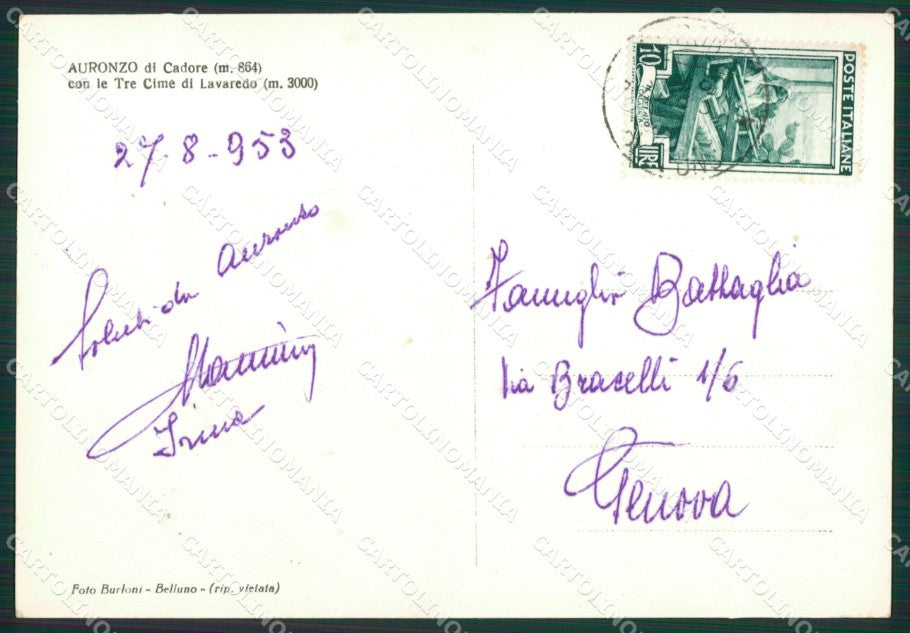 AURONZO di Cadore (m. 864)
con le Tre Cime di Lavaredo (m. 3000)
27-8-953
Saluti da Auronzo
Irma
Foto Burloni - Belluno - (rip. vietata)
10
LIRE
POSTE ITALIANE
Famiglia Battaglia
Via Bracelli 1/6
Genova
CARTOLINOMANIA